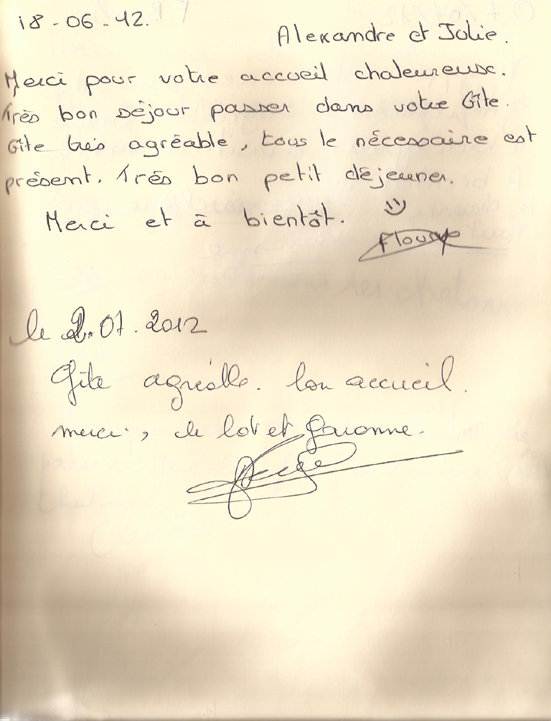 18-06-12.
Alexandre et Julie.
Merci pour votre accueil chaleureuse.
Très bon séjour passer dans votre Gîte.
Gîte très agréable, tous le nécessaire est
présent. Très bon petit déjeuner.
Merci et à bientôt.
le 2.07.2012
Gîte agréable. bon accueil.
merci, de lot et garonne.